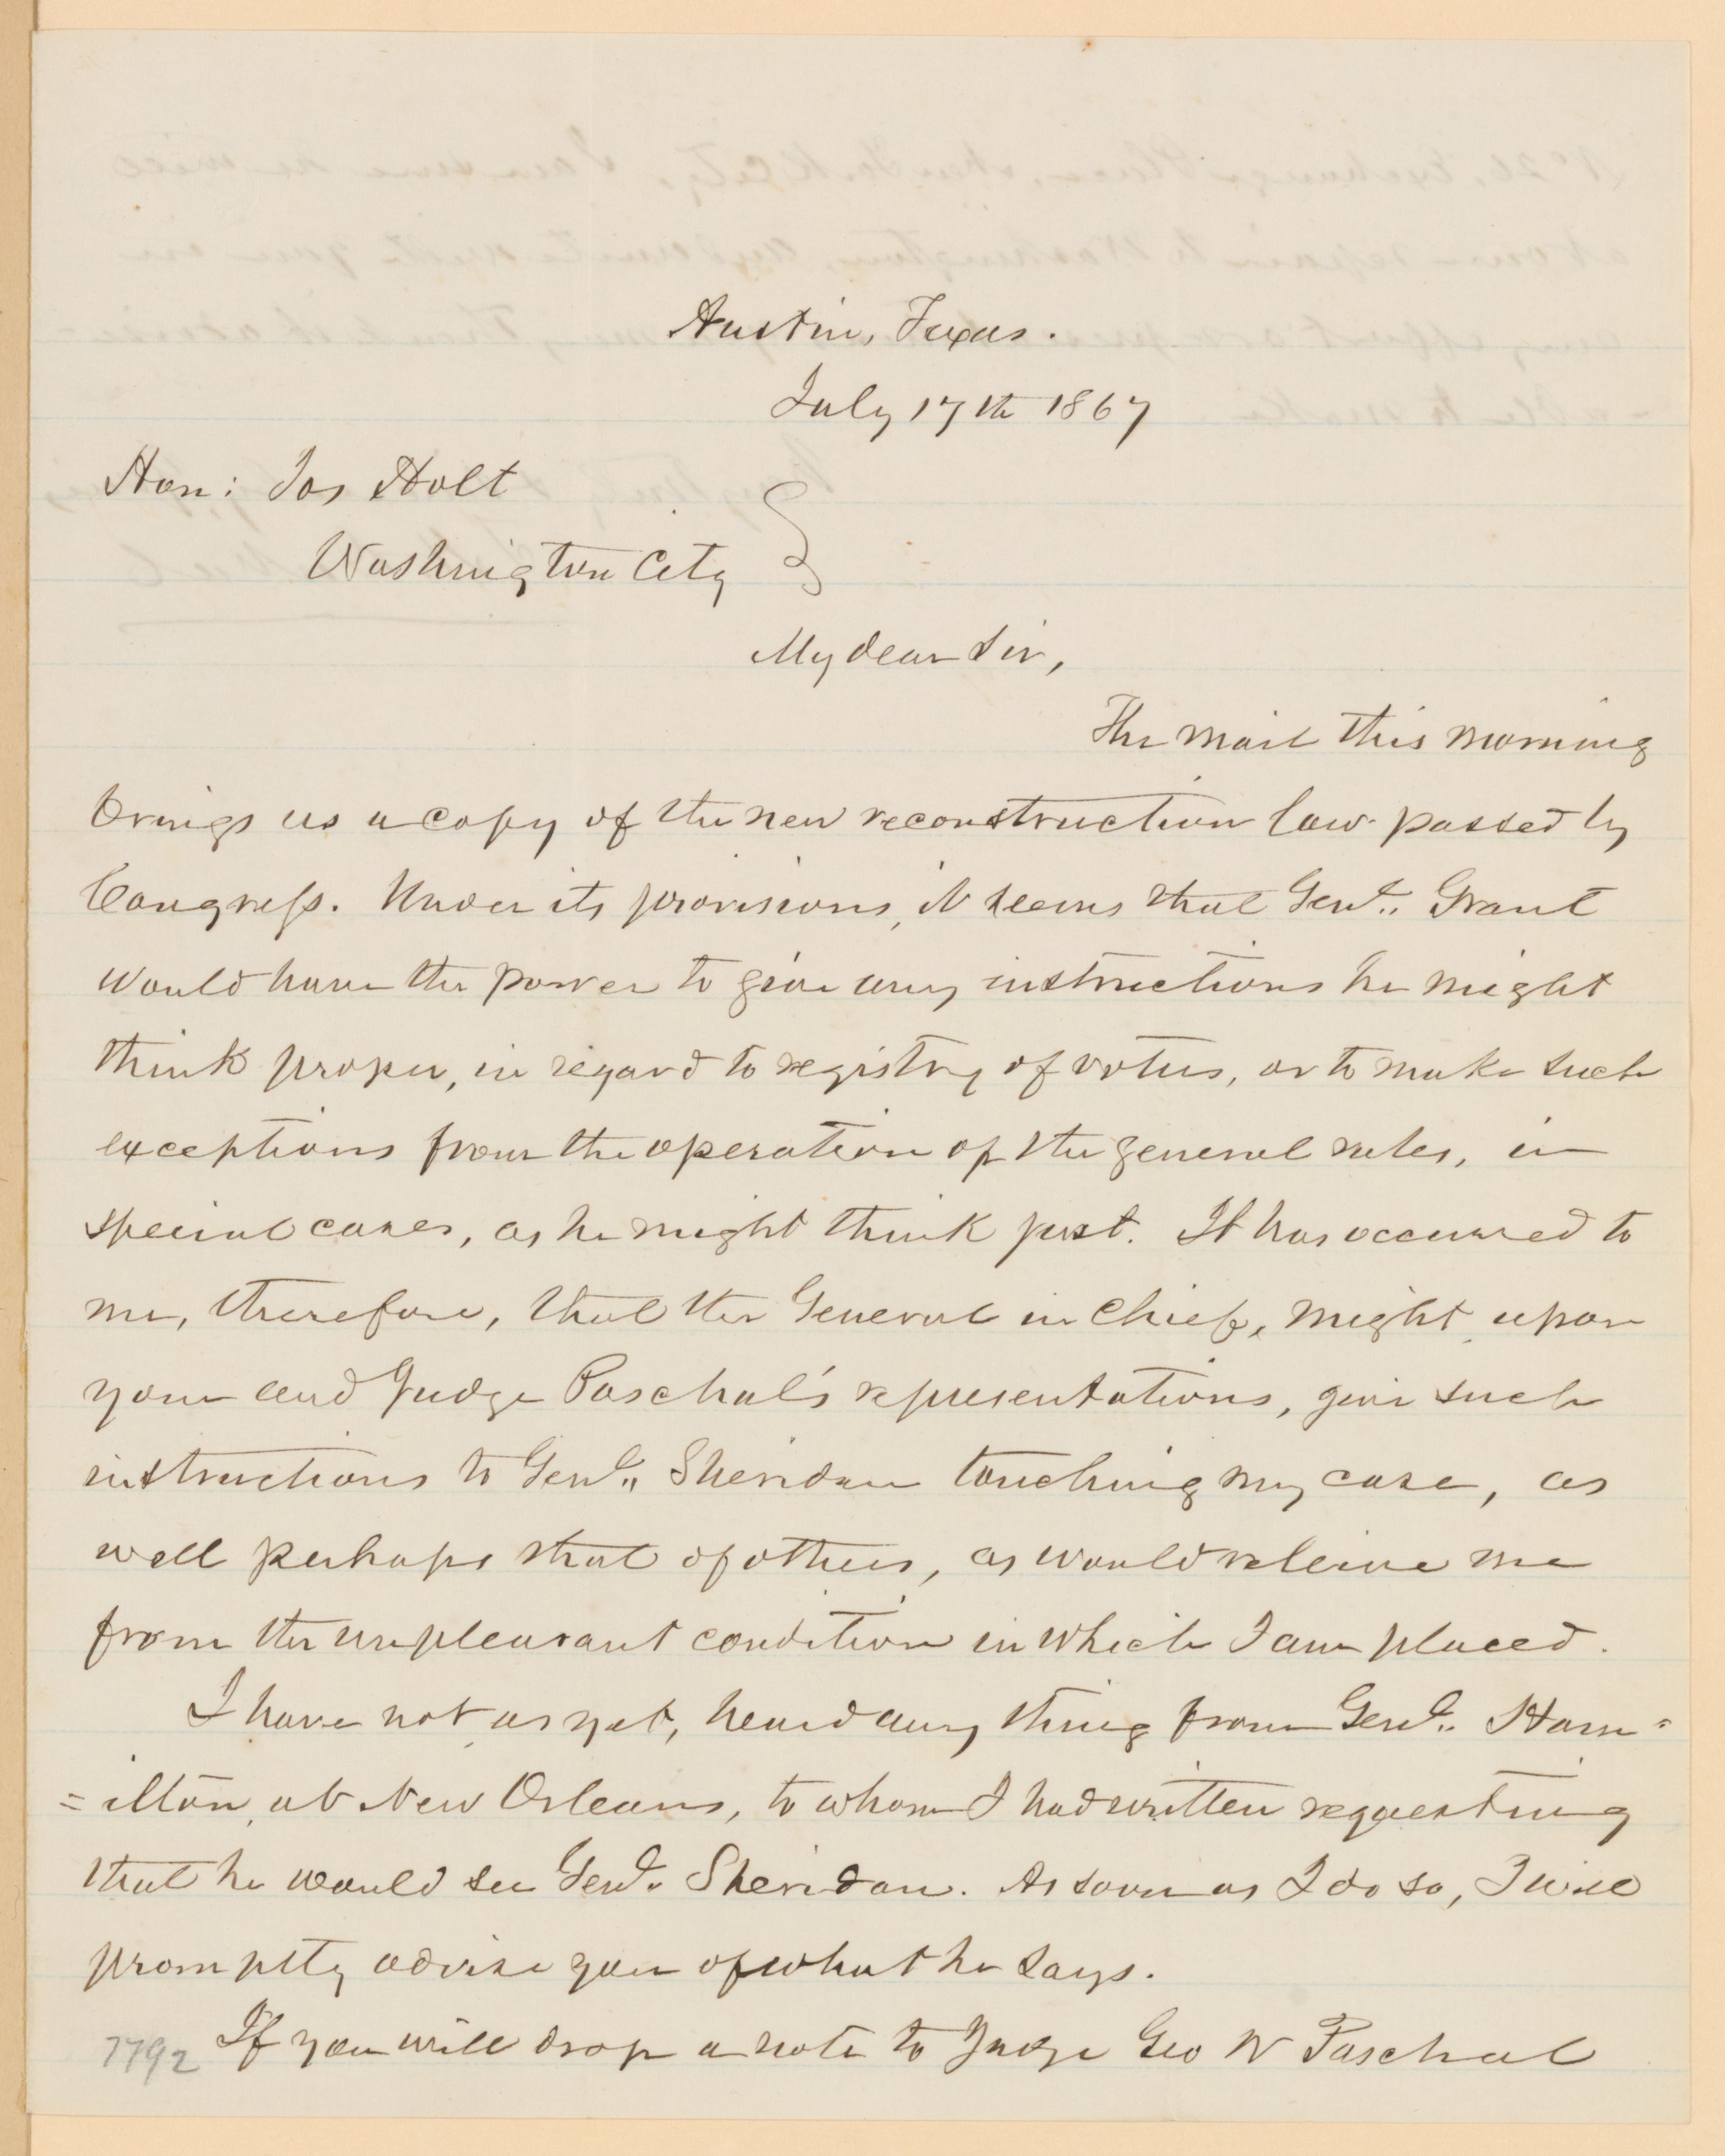 Austin, Texas.
July 17th 1867
Hon: Jos Holt
Washington City
My dear Sir,
The mail this morning
brings us a copy of the new reconstruction law passed by
Congress. Under its provisions, it seems that Genl. Grant
would have the power to give any instructions he might
think proper, in regard to registry of voters, or to make such
exceptions from the operation of the general rules, in
special cases, as he might think just. It has occurred to
me, therefore, that the General in Chief, might, upon
your and Judge Paschal's representations, give such
instructions to Genl. Sheridan touching my case, as
well perhaps that of others, as would releive me
from the unpleasant condition in which I am placed.
I have not as yet, heard any thing from Genl. Ham=
=ilton, at New Orleans, to whom I had written requesting
that he would see Genl. Sheridan. As soon as I do so, I will
promptly advise you of what he says.
If you will drop a note to Judge Geo W Paschal
7792